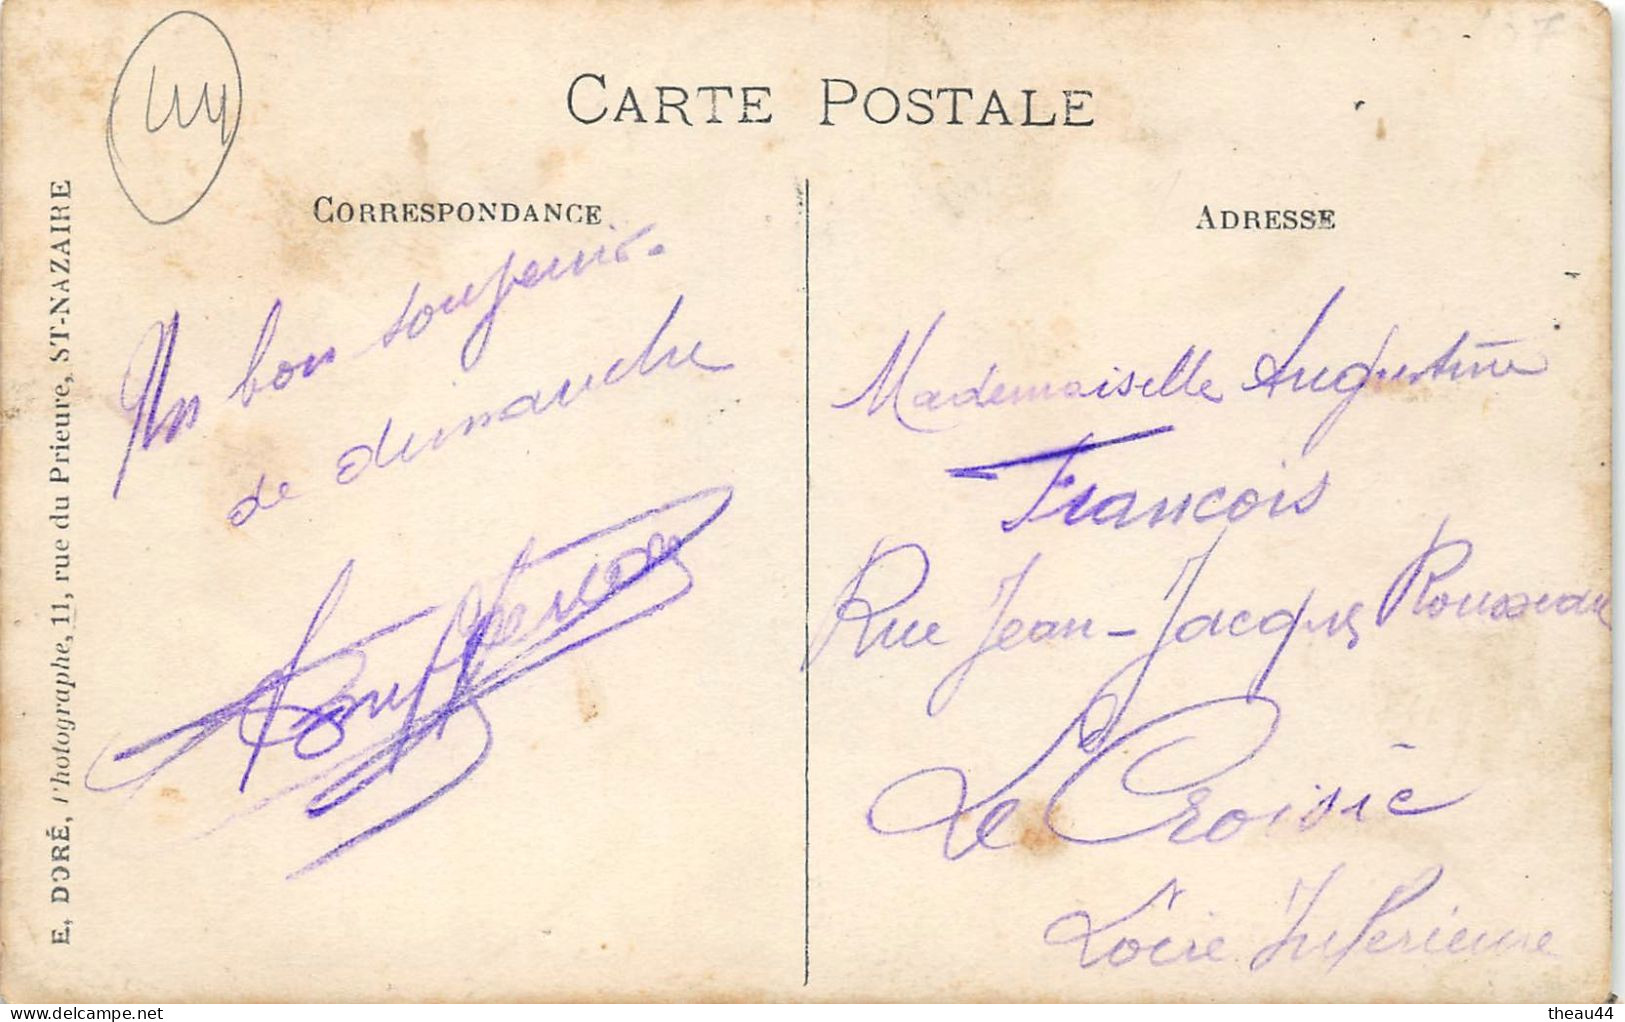 44
CARTE POSTALE
CORRESPONDANCE
Un bon souvenir.
de dimanche
E. DORÉ, Photographe, 11, rue du Prieure, ST-NAZAIRE
ADRESSE
Mademoiselle Augustine
Francois
Rue Jean-Jacques Rousseau
Le Croisic
Loire Inferieure
theau44